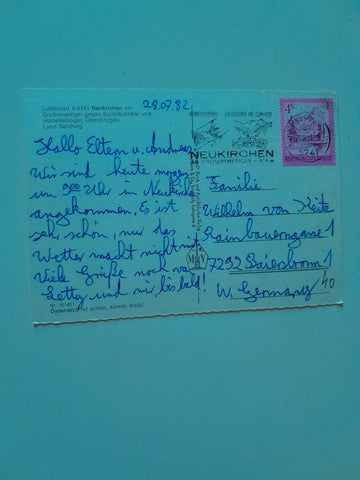 Luftkurort A-5741 Neukirchen am
Großvenediger gegen Sulzbachtäler und
Hüttelталkogel, Oberpinzgau
Land Salzburg
28.07.82
Hallo Eltern u. Andreas.
Wir sind heute morgen
um 9⁰⁰ Uhr in Neukirchen
angekommen. Es ist
sehr schön, nur das
Wetter macht nicht mit
Viele Grüße noch von
Letty und mir, bis bald!
Österreich ist schön, komm, bleib!
WINTERSPORT - ERHOLUNG IM SOMMER
NEUKIRCHEN
AM GROSSVENEDIGER
5741
4 S
REPUBLIK ÖSTERREICH
Familie
Wilhelm von
7292 Baiersbronn 1
W. Germany